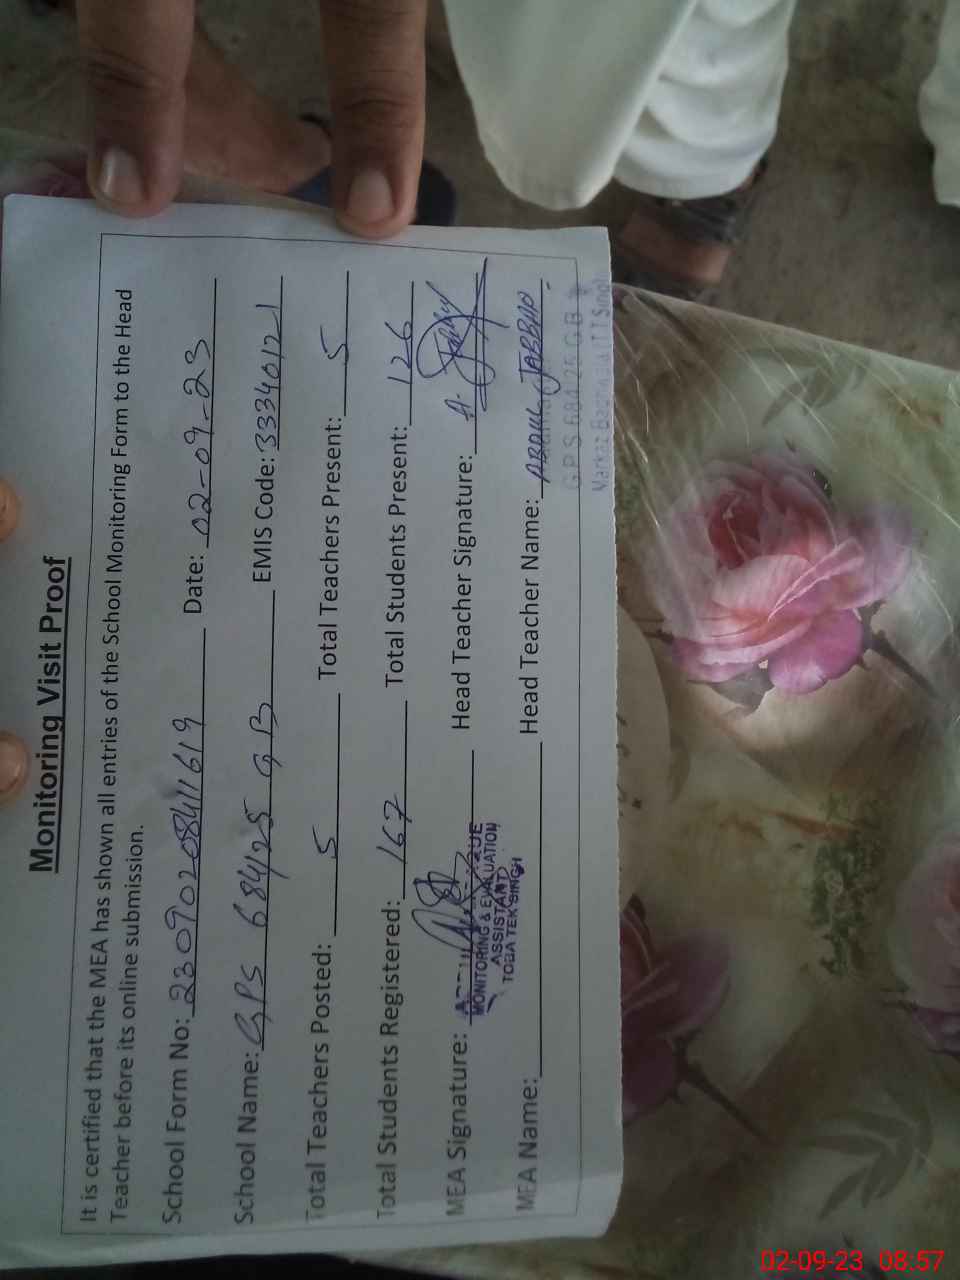 Monitoring Visit Proof
It is certified that the MEA has shown all entries of the School Monitoring Form to the Head
Teacher before its online submission.
School Form No: 23090208411619 Date: 02-09-23
School Name: GPS 684/25 GB EMIS Code: 33340121
Total Teachers Posted: 5 Total Teachers Present: 5
Total Students Registered: 167 Total Students Present: 126
MEA Signature: Head Teacher Signature: A. Jabbar
MONITORING & EVALUATION
ASSISTANT
TOBA TEK SINGH
MEA Name: Head Teacher Name: ABDUL JABBAR
G P S 684/25 G B
Markaz
02-09-23 08:57